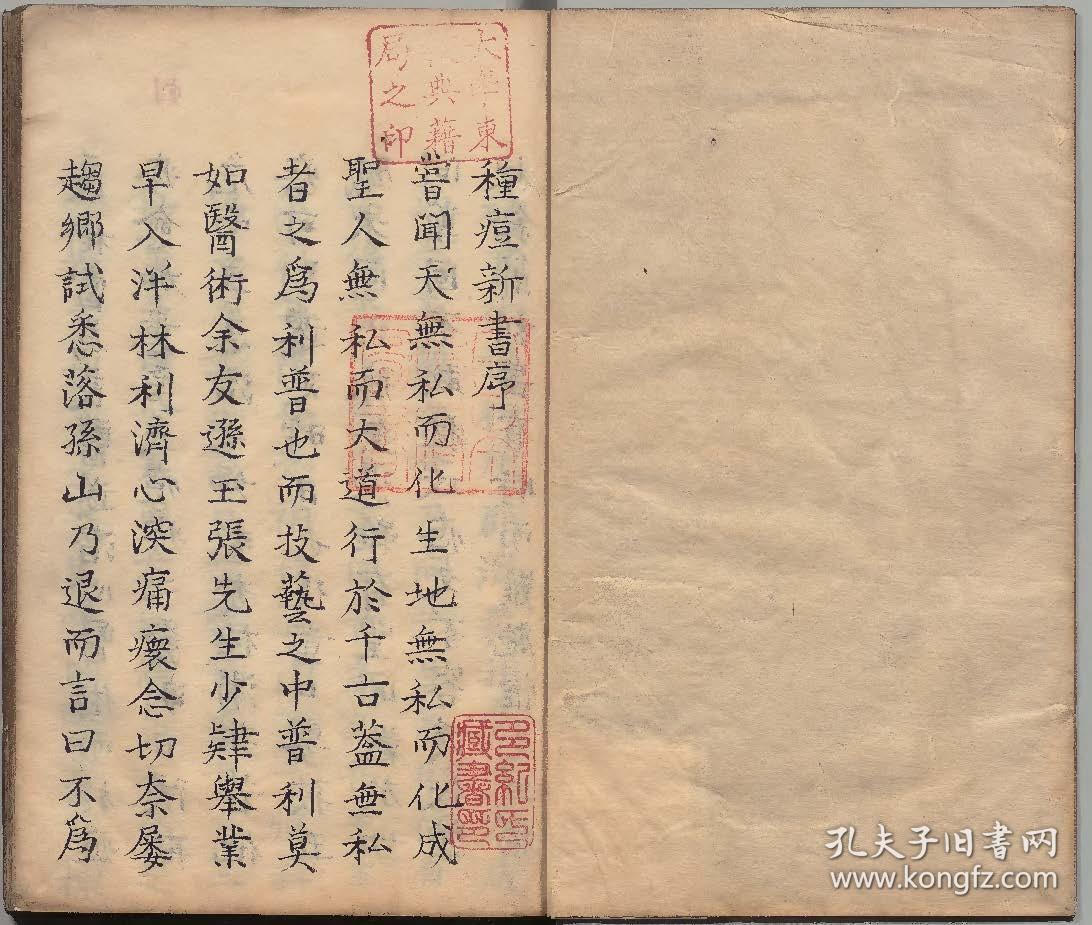 種痘新書序
嘗聞天無私而化生地無私而化成
聖人無私而大道行於千古葢無私
者之爲利普也而技藝之中普利莫
如醫術余友遜玉張先生少肄舉業
早入泮林利濟心深痌瘝念切奈屡
趨鄉試悉落孫山乃退而言曰不爲
東典藉局之印
多紀氏藏書印
孔夫子旧书网
www.kongfz.com